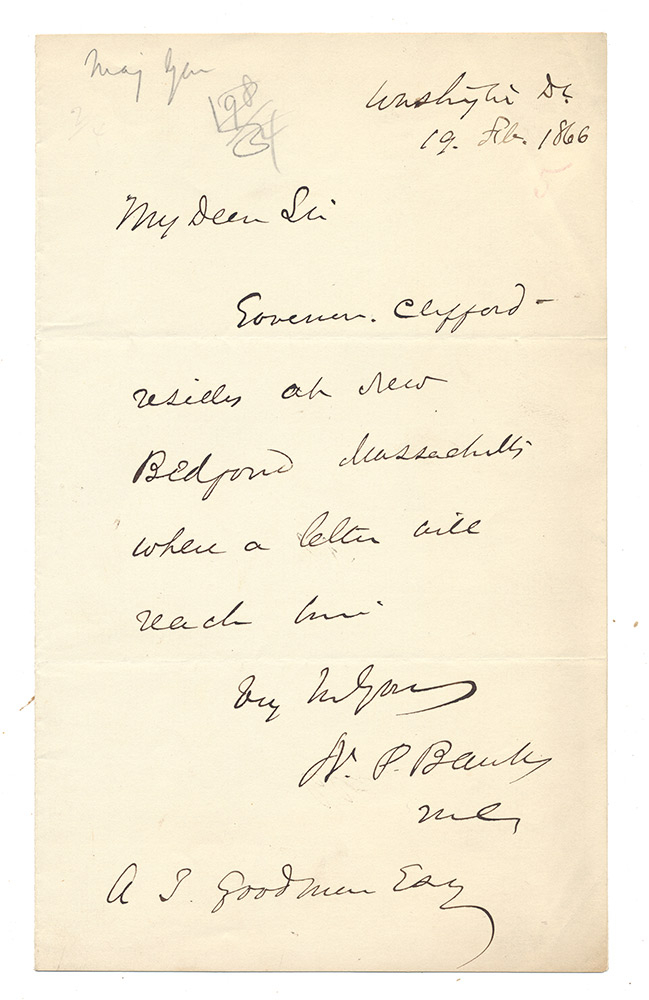 Maj Gen
198/64
Washington Dc.
19. Feb. 1866
My Dear Sir
Governor. Clifford -
resides at New
Bedford Massachusetts
where a letter will
reach him
Very Tr Yours
N. P. Banks
M.C.
A T. Goodman Esq